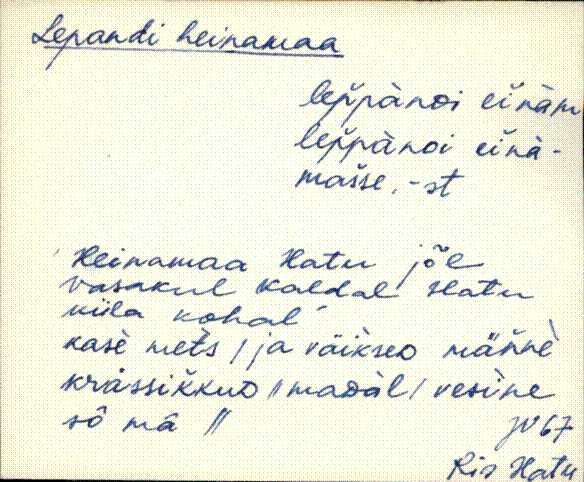 Lepandi heinamaa
lep̆pànᴅi eìnàm
lep̆pànᴅi eìnà-
mašse, -st
Heinamaa Hatu jõe
vasakul kaldal Hatu
küla kohal
kasè mets / ja väikseᴅ männè
kràssik̆kuᴅ // maᴅàl / vesìne
sô mâ //
JV 67
Ris Hatu